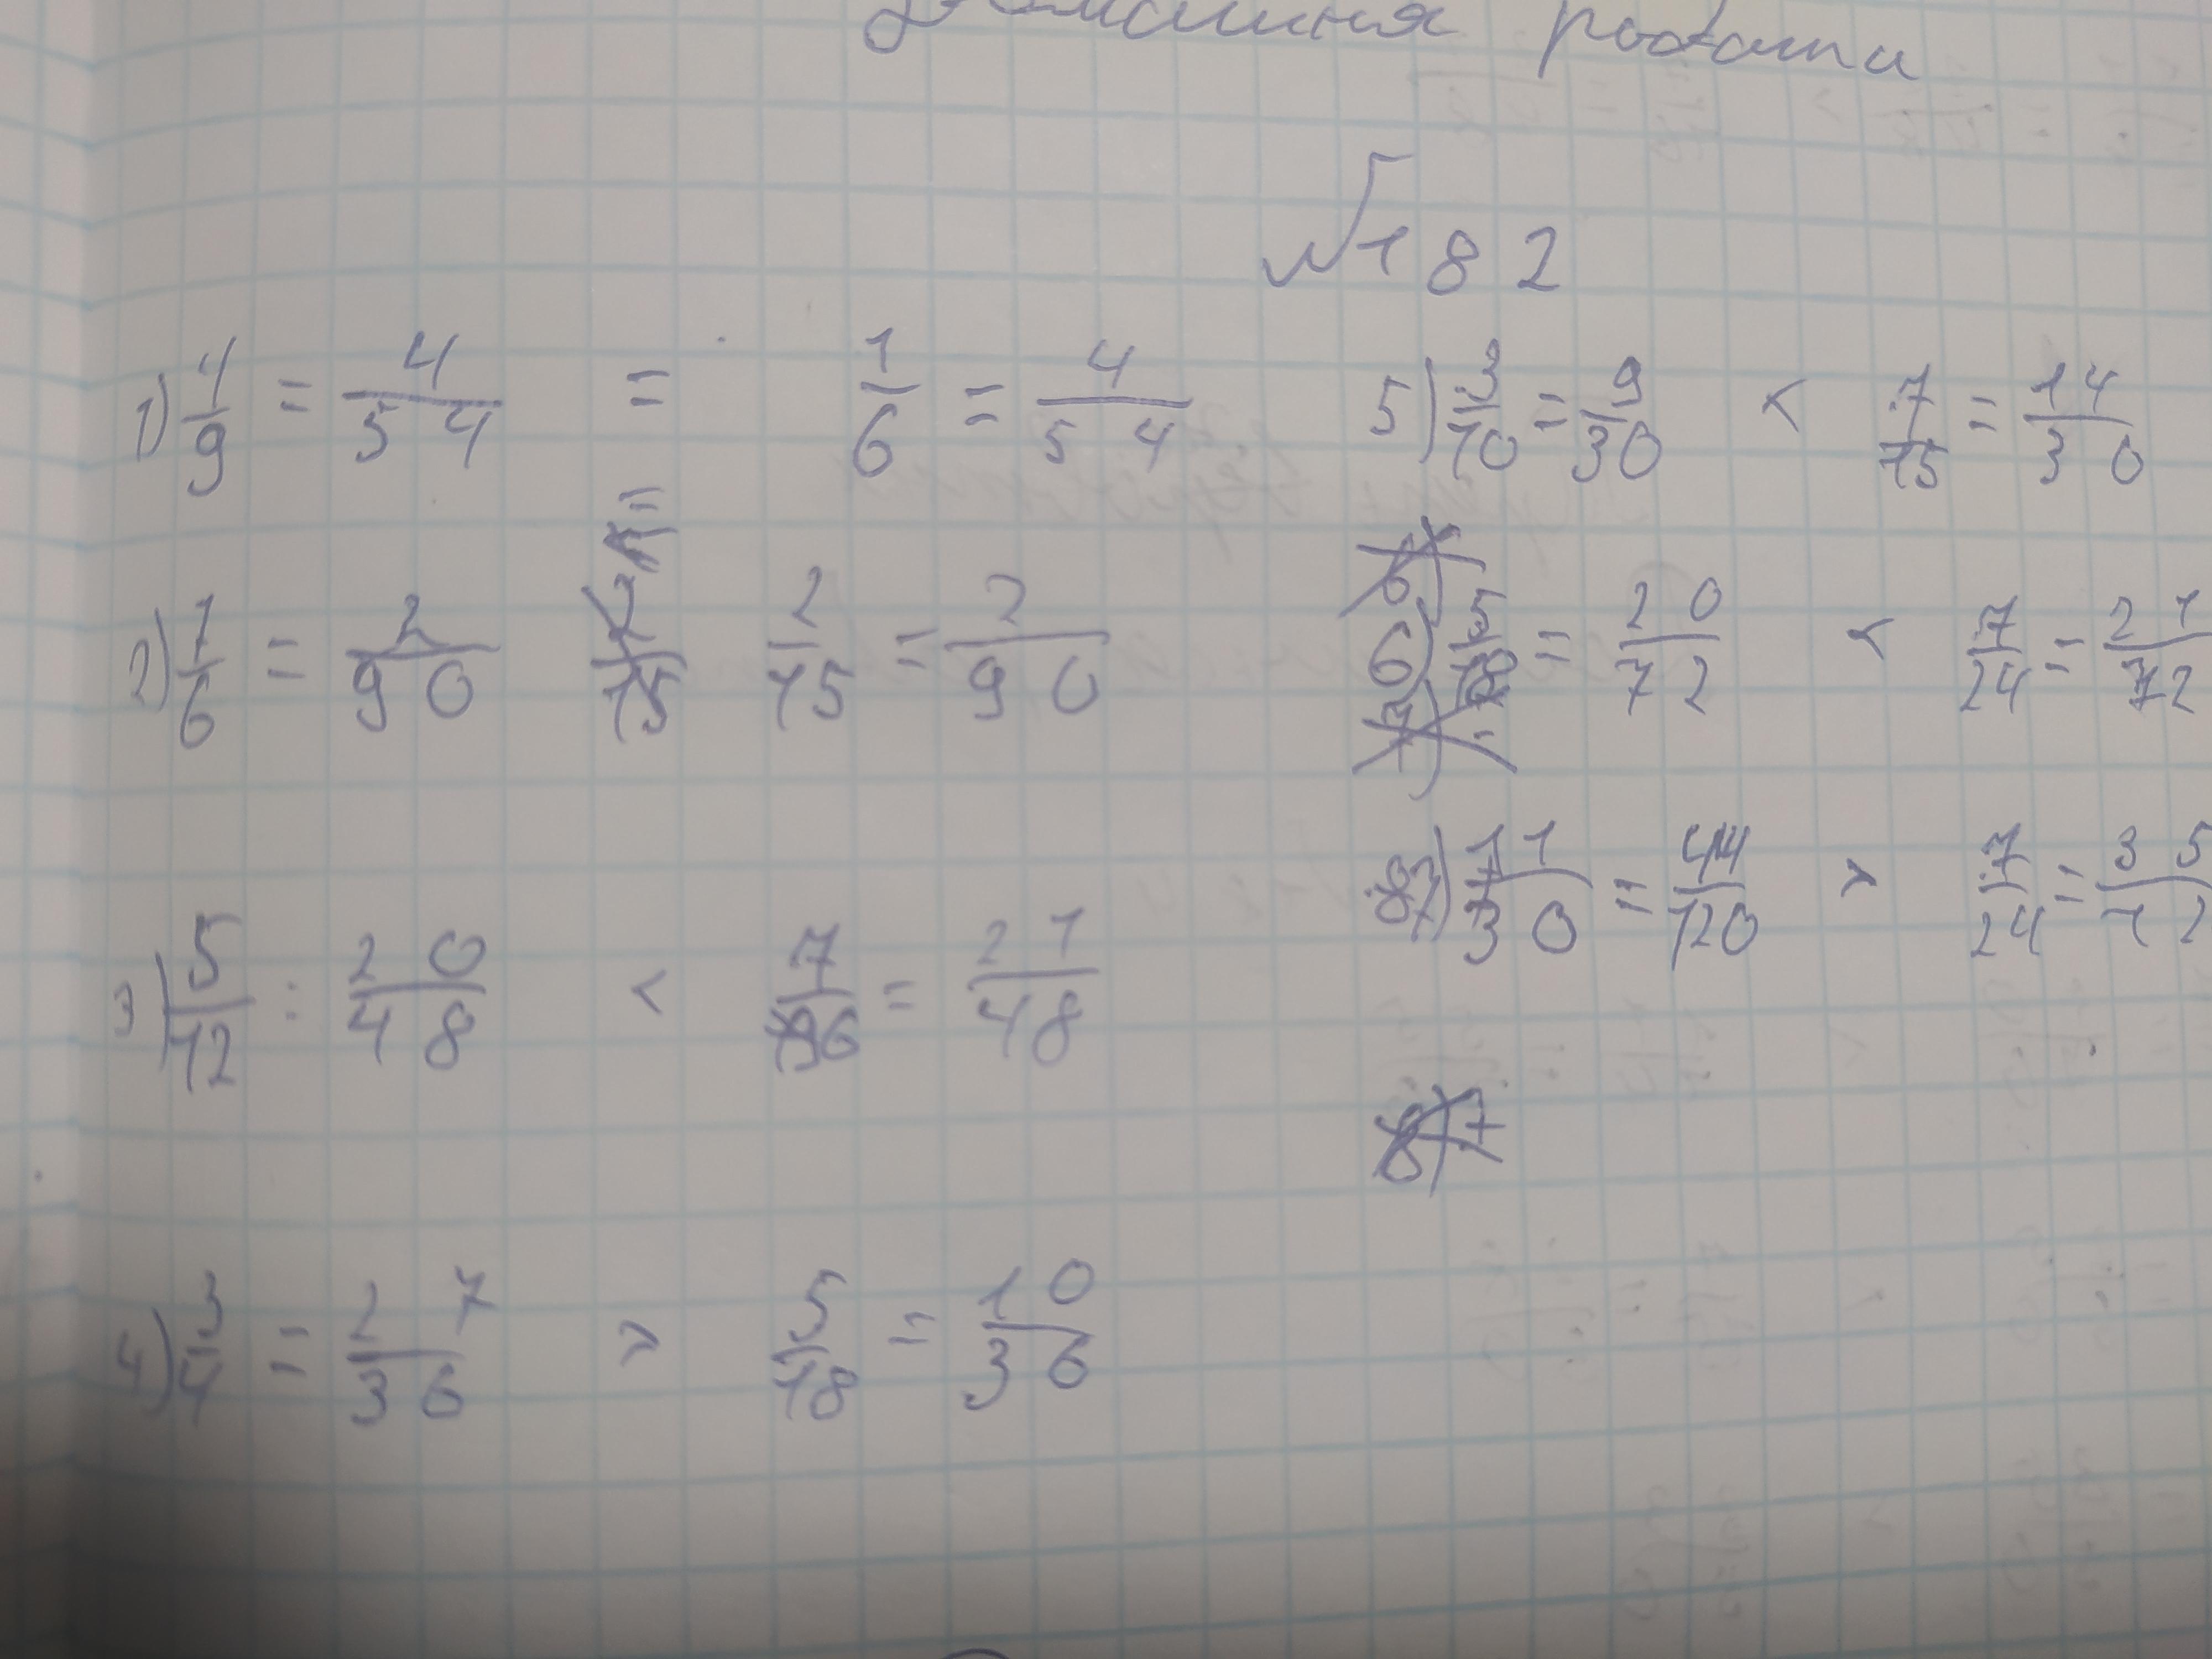 Домашня робота
№182
1) 4/9 = 4/54 = 1/6 = 4/54
2) 1/6 = 2/90 = 2/15 = 2/90
3) 5/12 = 20/48 < 7/16 = 21/48
4) 3/4 = 27/36 > 5/18 = 10/36
5) 3/10 = 9/30 < 7/15 = 14/30
6) 5/18 = 20/72 < 7/24 = 21/72
7) 11/30 = 44/120 > 7/24 = 35/12